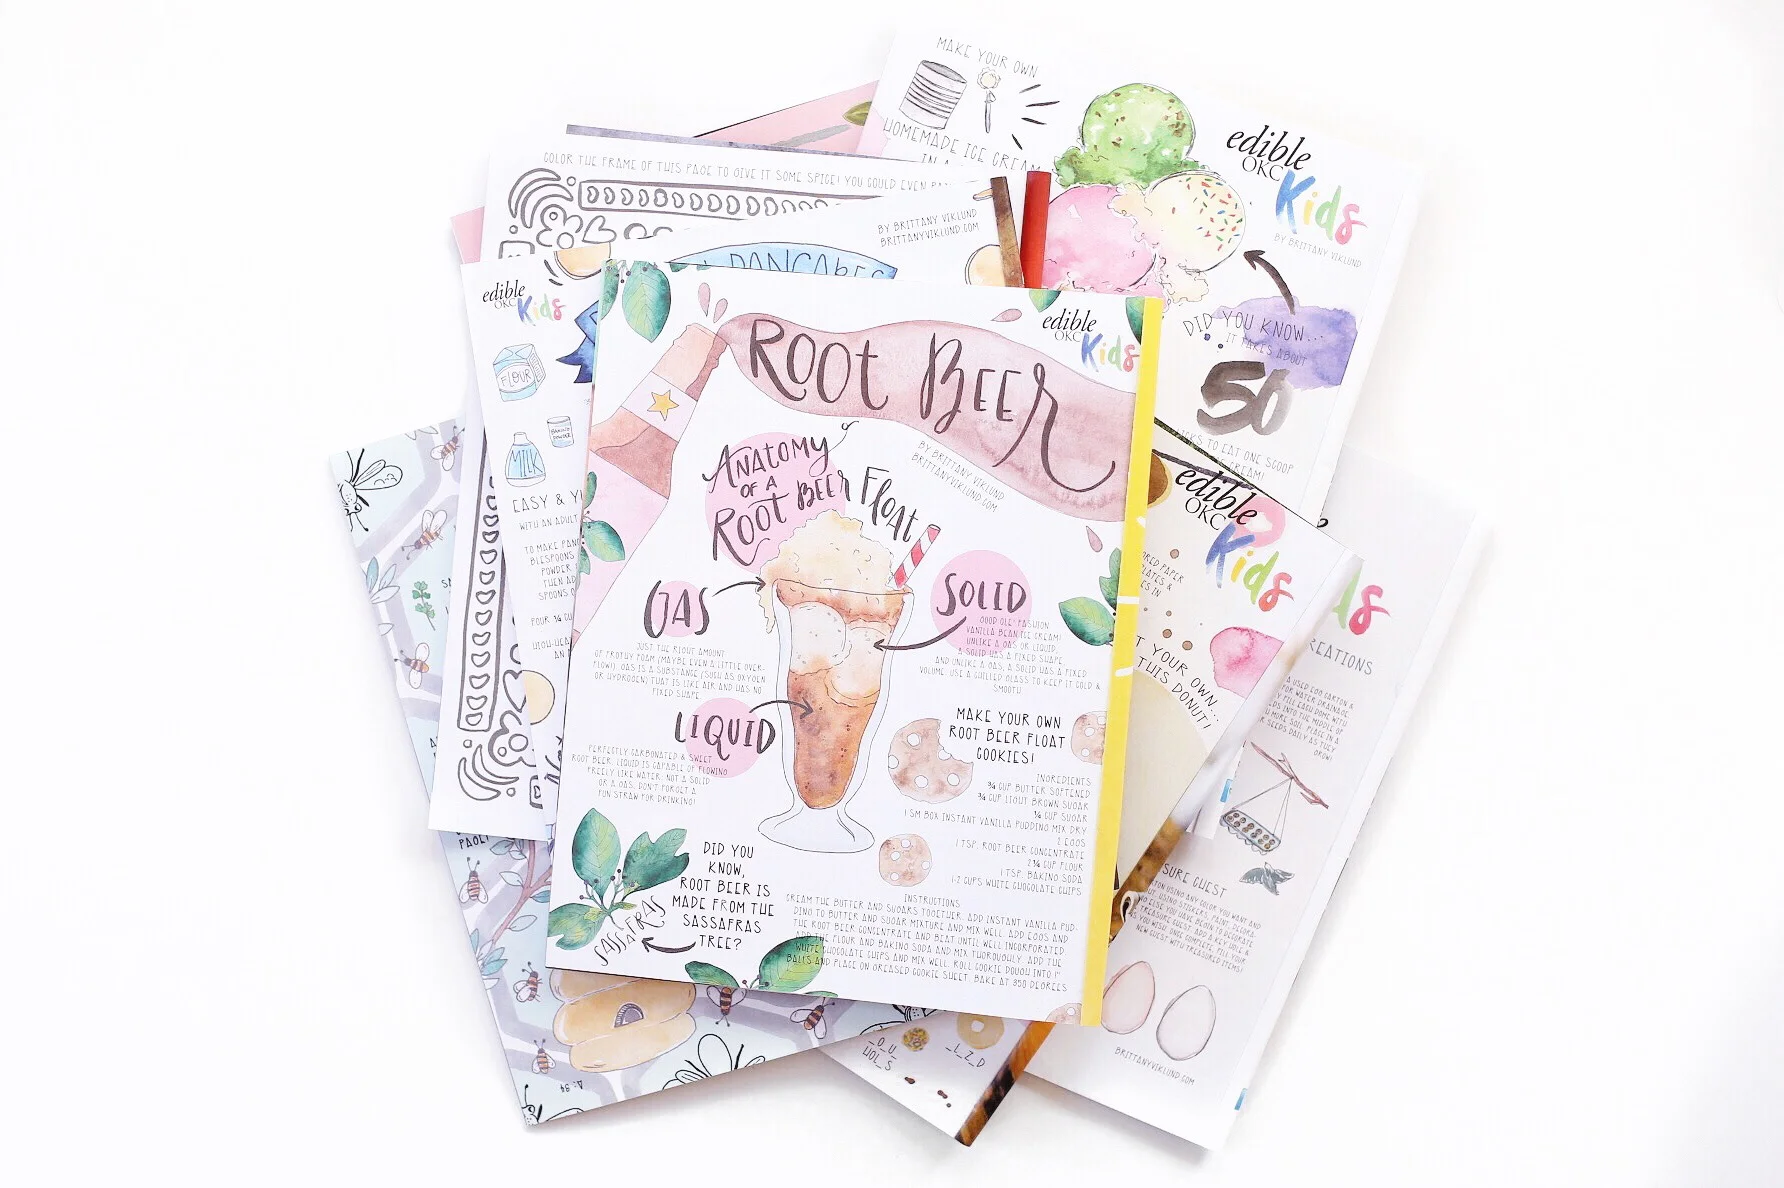 MAKE YOUR OWN
HOMEMADE ICE CREAM
IN A
edible
OKC
Kids
BY BRITTANY VIKLUND
DID YOU KNOW...
IT TAKES ABOUT
50
LICKS TO EAT ONE SCOOP
CREAM!
COLOR THE FRAME OF THIS PAGE TO GIVE IT SOME SPICE! YOU COULD EVEN
BY BRITTANY VIKLUND
BRITTANYVIKLUND.COM
PANCAKES
edible
OKC
Kids
FLOUR
BAKING
POWDER
MILK
EASY &
WITH AN ADULT
TO MAKE
POWDER
THEN AD
SPOONS
POUR ¼
edible
OKC
Kids
ROOT BEER
BY BRITTANY VIKLUND
BRITTANYVIKLUND.COM
ANATOMY
OF A
ROOT BEER FLOAT
GAS
JUST THE RIGHT AMOUNT
OF FROTHY FOAM (MAYBE EVEN A LITTLE OVER-
FLOW!). GAS IS A SUBSTANCE (SUCH AS OXYGEN
OR HYDROGEN) THAT IS LIKE AIR AND HAS NO
FIXED SHAPE.
SOLID
GOOD OLE' FASHION
VANILLA BEAN ICE CREAM!
UNLIKE A GAS OR LIQUID,
A SOLID HAS A FIXED SHAPE,
AND UNLIKE A GAS, A SOLID HAS A FIXED
VOLUME. USE A CHILLED GLASS TO KEEP IT COLD &
SMOOTH.
LIQUID
PERFECTLY CARBONATED & SWEET
ROOT BEER. LIQUID IS CAPABLE OF FLOWING
FREELY LIKE WATER. NOT A SOLID
OR A GAS. DON'T FORGET A
FUN STRAW FOR DRINKING!
MAKE YOUR OWN
ROOT BEER FLOAT
COOKIES!
INGREDIENTS
¾ CUP BUTTER SOFTENED
¾ CUP LIGHT BROWN SUGAR
¼ CUP SUGAR
1 SM BOX INSTANT VANILLA PUDDING MIX DRY
2 EGGS
1 TSP. ROOT BEER CONCENTRATE
2 ¼ CUP FLOUR
1 TSP. BAKING SODA
1-2 CUPS WHITE CHOCOLATE CHIPS
INSTRUCTIONS
CREAM THE BUTTER AND SUGARS TOGETHER. ADD INSTANT VANILLA PUD-
DING TO BUTTER AND SUGAR MIXTURE AND MIX WELL. ADD EGGS AND
THE ROOT BEER CONCENTRATE AND BEAT UNTIL WELL INCORPORATED.
ADD THE FLOUR AND BAKING SODA AND MIX THOROUGHLY. ADD THE
WHITE CHOCOLATE CHIPS AND MIX WELL. ROLL COOKIE DOUGH INTO 1"
BALLS AND PLACE ON GREASED COOKIE SHEET. BAKE AT 350 DEGREES
DID YOU
KNOW,
ROOT BEER IS
MADE FROM THE
SASSAFRAS
TREE?
SASSAFRAS
edible
OKC
Kids
PAPER
YOUR OWN...
THIS DONUT!
_O_U_
HOL_S
_L_Z_D
A USED EGG CARTON &
FOR WATER DRAINAGE
FILL EACH DOME WITH
INTO THE MIDDLE OF
MORE SOIL. PLACE IN A
SEEDS DAILY AS THEY
GROW!
USING ANY COLOR YOU WANT AND
USING STICKERS, PAINT, FIGURE
ELSE YOU HAVE BEEN TO DECORATE
TREASURE
NEW CHEST WITH TREASURED ITEMS!
BRITTANYVIKLUND.COM